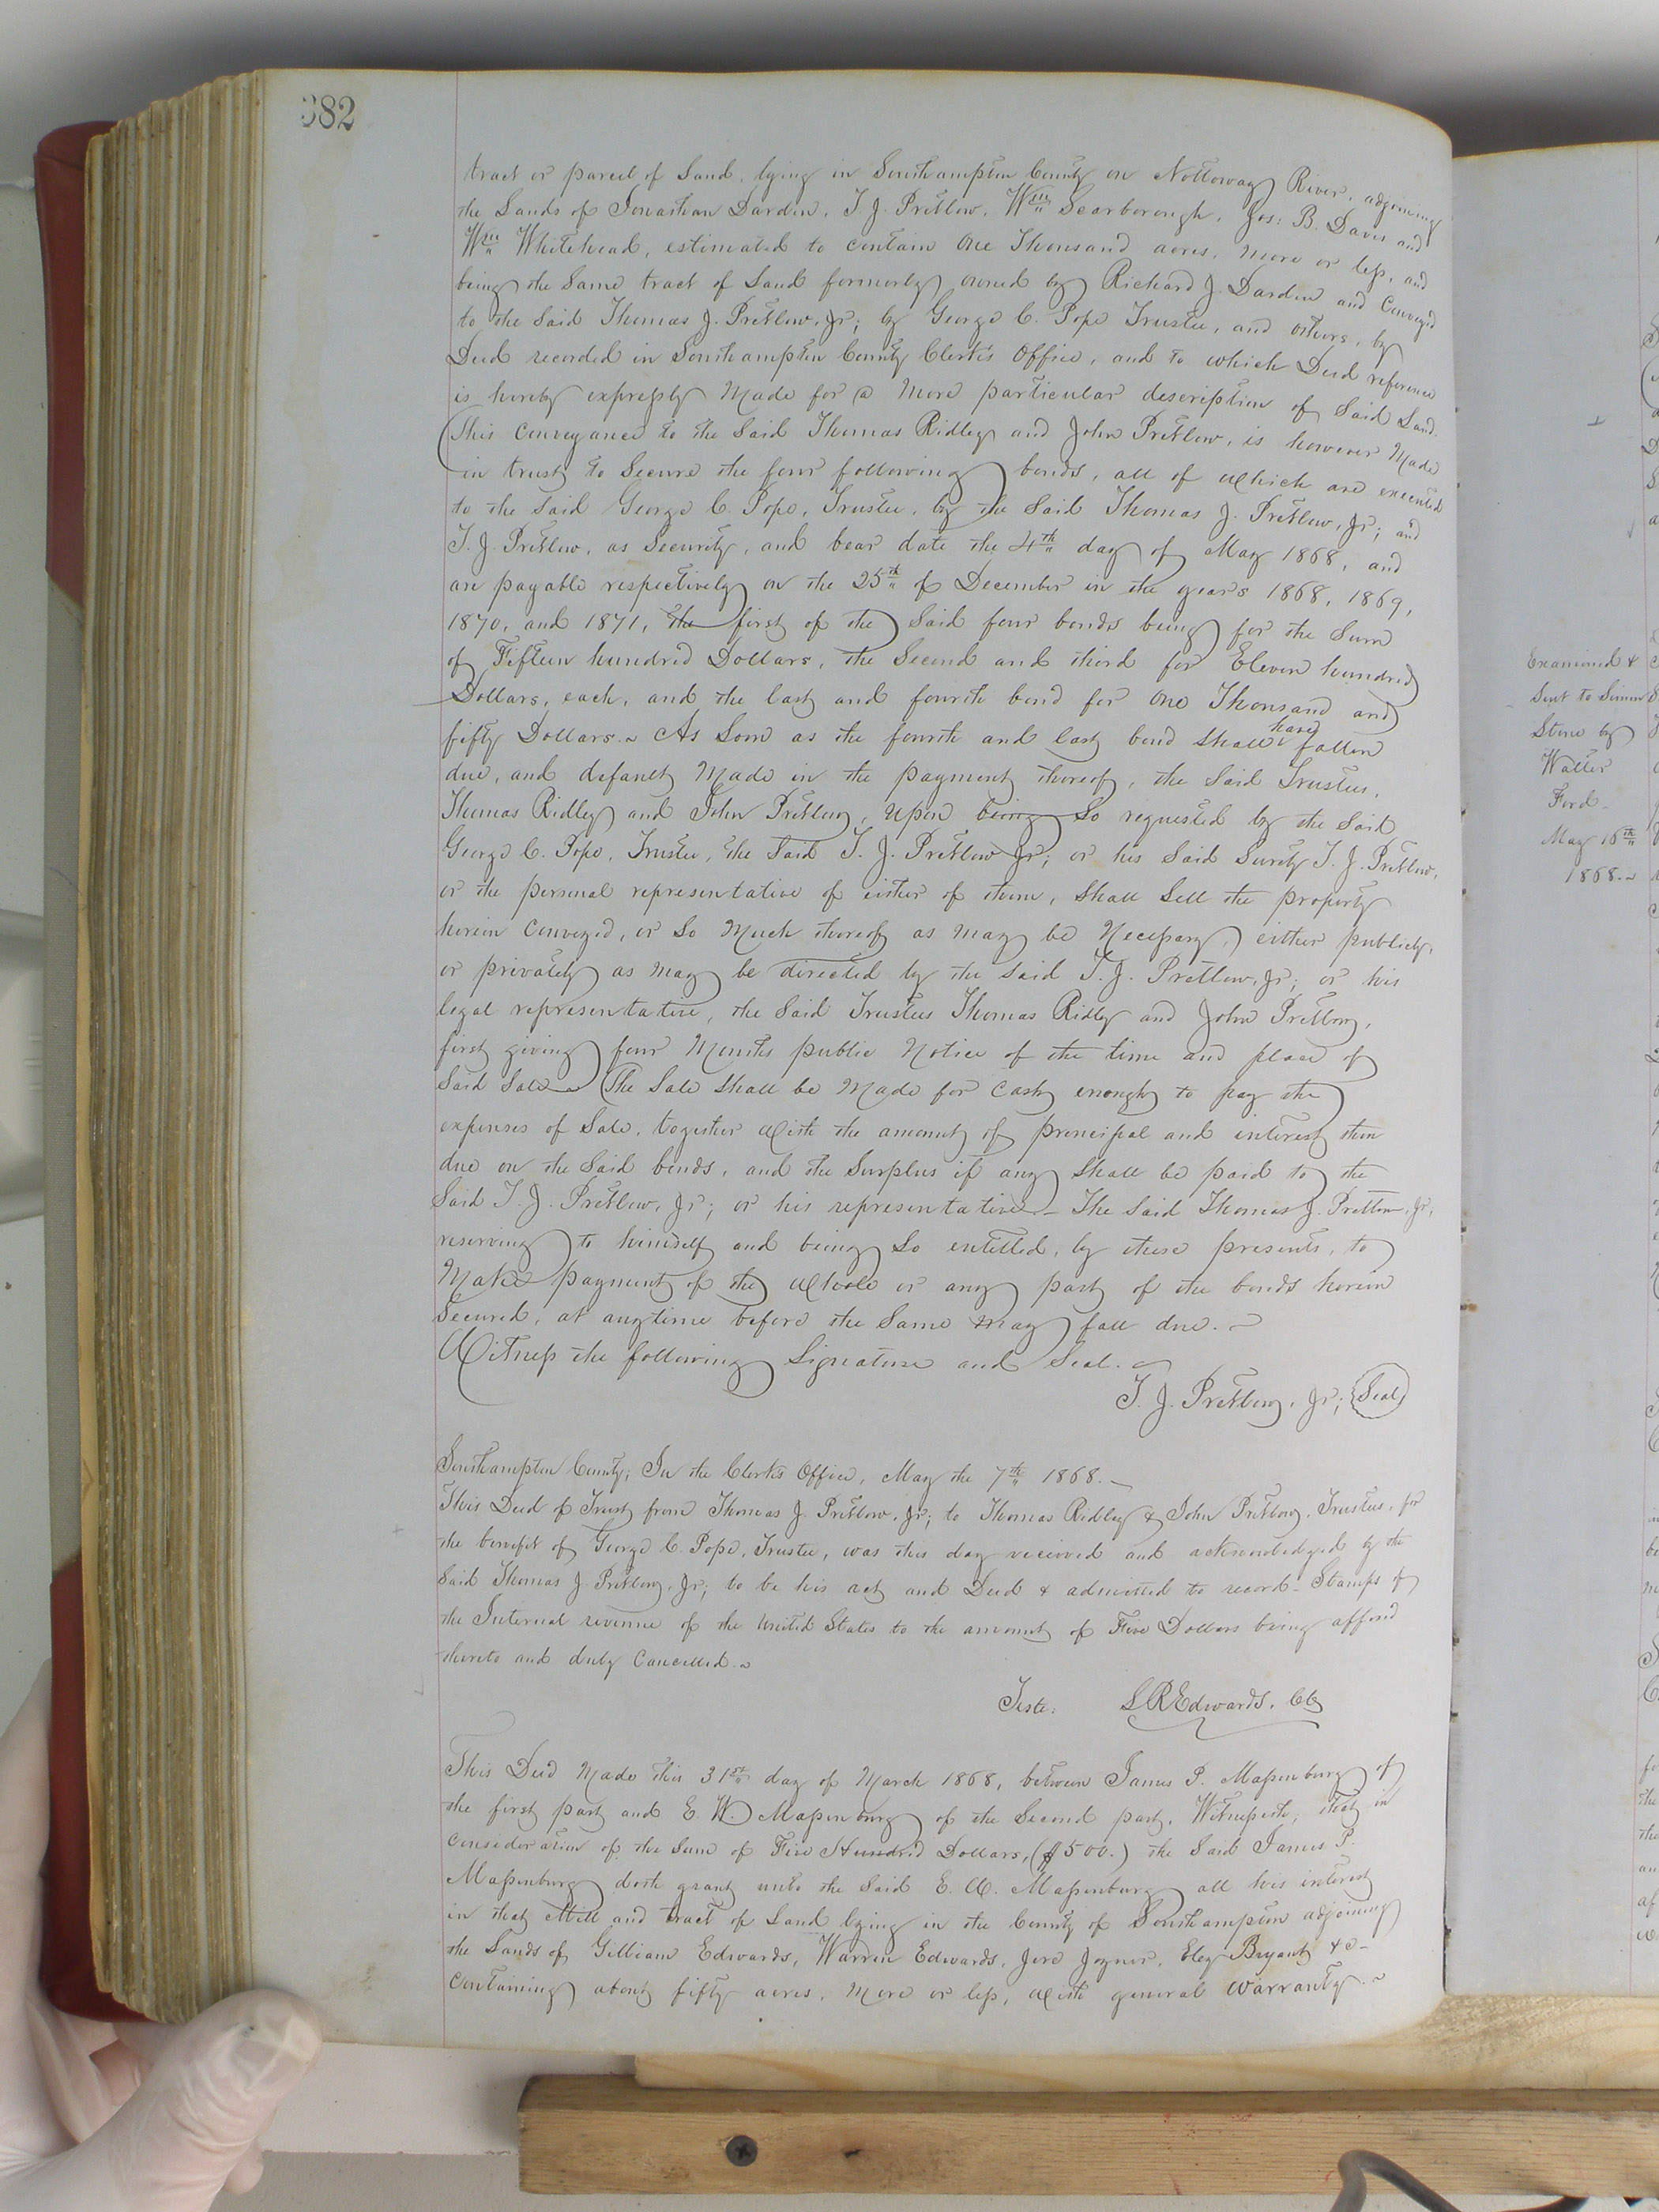 682
tract or parcel of Land, lying in Southampton County on Nottoway River, adjoining
the Lands of Jonathan Darden, T. J. Pretlow, Wm Scarborough, Jos: B. Davis and
Wm Whitehead, estimated to contain One Thousand acres, more or less, and
being the Same tract of Land formerly owned by Richard J. Darden and Conveyed
to the Said Thomas J. Pretlow, Jr; by George C. Pope Trustee, and others, by
Deed recorded in Southampton County Clerk's Office, and to which Deed reference
is hereby expressly Made for a More particular description of Said Land.
This Conveyance to the Said Thomas Ridley and John Pretlow, is however Made
in trust to Secure the four following bonds, all of which are executed
to the Said George C. Pope, Trustee, by the Said Thomas J. Pretlow, Jr; and
T. J. Pretlow, as Security, and bear date the 4th day of May 1868, and
are payable respectively on the 25th of December in the years 1868, 1869,
1870, and 1871, the first of the Said four bonds being for the Sum
of Fifteen hundred Dollars, the Second and third for Eleven hundred
Dollars, each, and the last and fourth bond for One Thousand and
fifty Dollars.~ As Soon as the fourth and last bond Shall have fallen
due, and default Made in the payment thereof, the Said Trustees,
Thomas Ridley and John Pretlow, upon being So requested by the Said
George C. Pope, Trustee, the Said T. J. Pretlow Jr; or his Said Surety T. J. Pretlow,
or the personal representative of either of them, Shall Sell the property
herein Conveyed, or So Much thereof as may be Necessary, either publicly,
or privately as may be directed by the Said T. J. Pretlow, Jr; or his
legal representative, the Said Trustees Thomas Ridley and John Pretlow,
first giving four Months public Notice of the time and place of
Said Sale ~ The Sale Shall be Made for Cash enough to pay the
expenses of Sale, together with the amount of principal and interest then
due on the Said bonds, and the Surplus if any Shall be paid to the
Said T. J. Pretlow, Jr; or his representative - The Said Thomas J. Pretlow, Jr;
reserving to himself and being So entitled, by these presents, to
Make payment of the whole or any part of the bonds herein
Secured, at anytime before the Same may fall due. ~
Witness the following Signature and Seal. ~
T. J. Pretlow, Jr; Seal
Southampton County; In the Clerk's Office, May the 7th 1868. ~
This Deed of Trust from Thomas J. Pretlow, Jr; to Thomas Ridley & John Pretlow, Trustees, for
the benefit of George C. Pope, Trustee, was this day received and acknowledged by the
Said Thomas J. Pretlow, Jr; to be his act and Deed & admitted to record - Stamps of
the Internal revenue of the United States to the amount of Five Dollars being affixed
thereto and duly Cancelled. ~
Teste: L R Edwards, Clk
This Deed Made this 31st day of March 1868, between James P. Massenburg of
the first part and E. W. Massenburg of the Second part, Witnesseth, that in
Consideration of the Sum of Five Hundred Dollars, ($500.) the Said James P.
Massenburg doth grant unto the Said E. W. Massenburg all his interest
in that Mill and tract of Land lying in the County of Southampton adjoining
the Lands of Gilliam Edwards, Warren Edwards, Jere Joyner, Eley Bryant &c -
Containing about fifty acres, More or less, with general Warranty. ~
Examined &
Sent to
Stone by
Walter
Ford -
May 16th
1868. ~